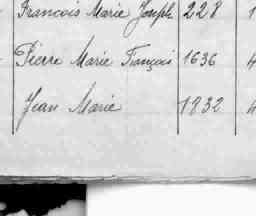 Francois Marie Joseph 228 1
Pierre Marie François 1636 4
Jean Marie 1832 4